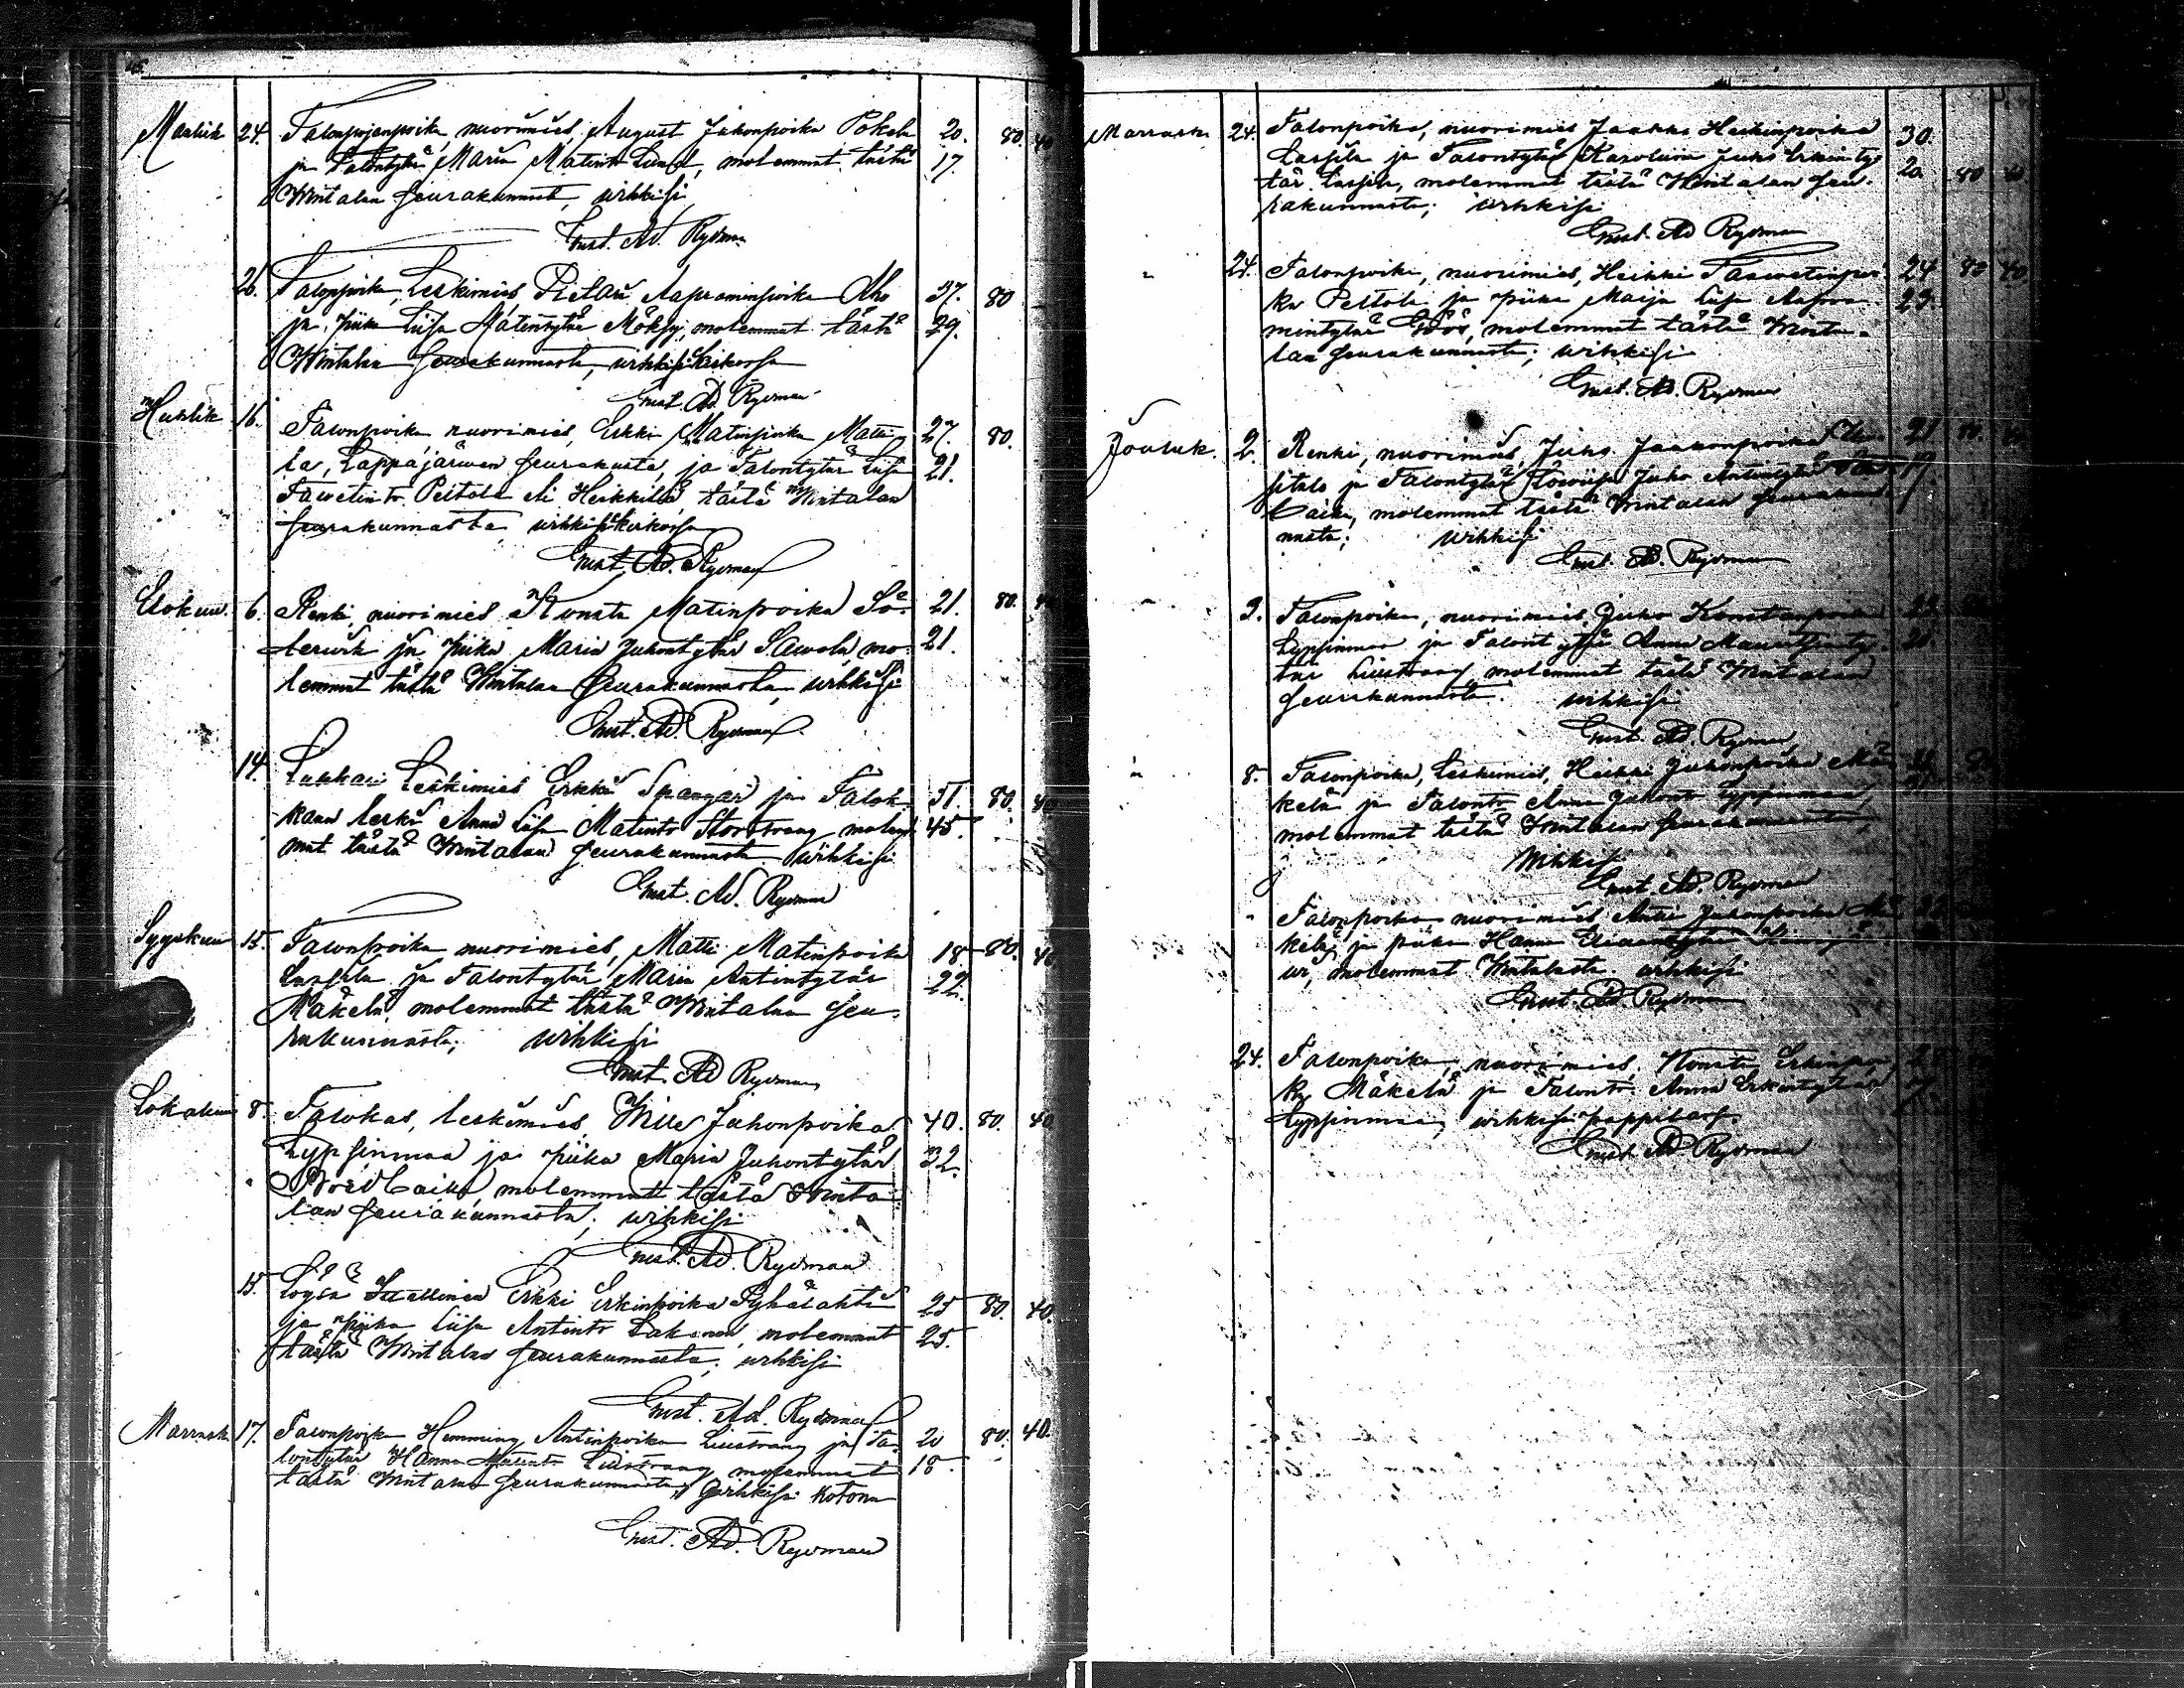 Maalisk 24. Talonpojanpoika, nuorimies, August Juhonpoika Pokela 20. 80. 40
ja Talontytär Maria Matintr Lund, molemmat tästä 17.
Wintalan seurakunnasta, wihkisi
Gust. Ad. Rydman
26. Talonpoika, Leskimies, Pietari Aapraminpoika Aho 37. 80
ja piika Liisa Matintytär Möksy, molemmat tästä 29.
Wintalan seurakunnasta, wihkisi kirkossa
Gust. Ad. Rydman
Huhtik 16. Talonpoika nuorimies, Erkki Matinpoika Matti 27. 80.
la, Lappajärwen seurakusta, ja Talontytär Liisa 21.
Tawetintr Peltola eli Heikkilä, tästä Wintalan
seurakunnasta wihkisi kirkossa
Gust. Ad. Rydman
Elokuu. 6. Renki, nuorimies Konsta Matinpoika Sö- 21. 80. 40
ja piika Maria Juhontytär Sawola, mo- 21.
lemmat tästä Wintalan seurakunnasta, wihkisi
Gust. Ad. Rydman
14. Lukkari Leskimies Erkki Spangar ja Talok- 51. 80. 40
kaan leski Anna Liisa Matintr Storstrang molem 45.
mat tästä Wintalan seurakunnasta wihkisi
Gust. Ad. Rydman
Syyskuu 15. Talonpoika nuorimies, Matti Matinpoika 18 80. 40
Lassila ja Talontytär Maria Antintytär 22.
Mäkelä, molemmat tästä Wintalan seu-
rakunnasta; wihkisi
Gust. Ad Rydman
Lokakuu 8. Talokas, leskimies, Wille Juhonpoika 40. 80. 40
Lypsinmaa ja piika Maria Juhontytär 32.
molemmat tästä Winta
lan seurakunnasta; wihkisi
Gust. Ad. Rydman
15. Erkki Erkinpoika Pyhälahti 25 80. 40.
ja piika Liisa Antintr Lakanen, molemmat 25.
tästä Wintalan seurakunnasta; wihkisi
Gust. Ad. Rydman
Marrask 17. Talonpoik Hemming Antinpoika Liustrang ja Ta- 20 80. 40.
lontytär Hanna Matintr Liustrang molemmat 18.
tästä Wintalan seurakunnasta, wihkisi kotona
Gust. Ad. Rydman
Marrask 24. Talonpoika, nuorimies Jaakko Heikinpoika 30.
Lassila ja Talontytär Karoliina Juho Erkinty- 20. 80 40
tär Lassila, molemmat tästä Wintalan seu-
rakunnasta; wihkisi
Gust. Ad Rydman
" 24. Talonpoika, nuorimies, Heikki Taawetinpoi- 24 80 40.
ka Peltola ja piika Maija Liisa Aapra- 23.
mintytär molemmat tästä Winta-
lan seurakunnasta; wihkisi
Gust. Ad. Rydman
Jouluk. 2. Renki, nuorimies Juho Jaakonpoika Uu- 21 80.
sitalo ja Talontytär Lowiisa Juho Antintytär 17.
molemmat tästä Wintalan seurakun
nasta; wihkisi
Gust. Ad. Rydman
" 2. Talonpoika, nuorimies, Juho Konstanpoika
Lypsinmaa ja Talontytär Anna Mauritsinty- 20.
tär Liustrang, molemmat tästä Wintalan
seurakunnasta. wihkisi
Gust. Ad. Rydman
" 8. Talonpoika, Leskimies, Heikki Juhonpoika Mä-
kelä ja Talontr Anna Juhontr Lypsinmaa,
molemmat tästä Wintalan seurakunnasta,
Wihkisi
Gust. Ad. Rydman
" Talonpoika nuorimies Antti Juhonpoika Mä
kelä ja piika Hanna
molemmat Wintalasta. wihkisi
Gust. Ad. Rydman
24. Talonpoika, nuorimies, Konsta Erkinpoi
ka Mäkelä ja Talontr Anna Erkintytär
Lypsinmaa, wihkisi pappilassa.
Gust. Ad Rydman